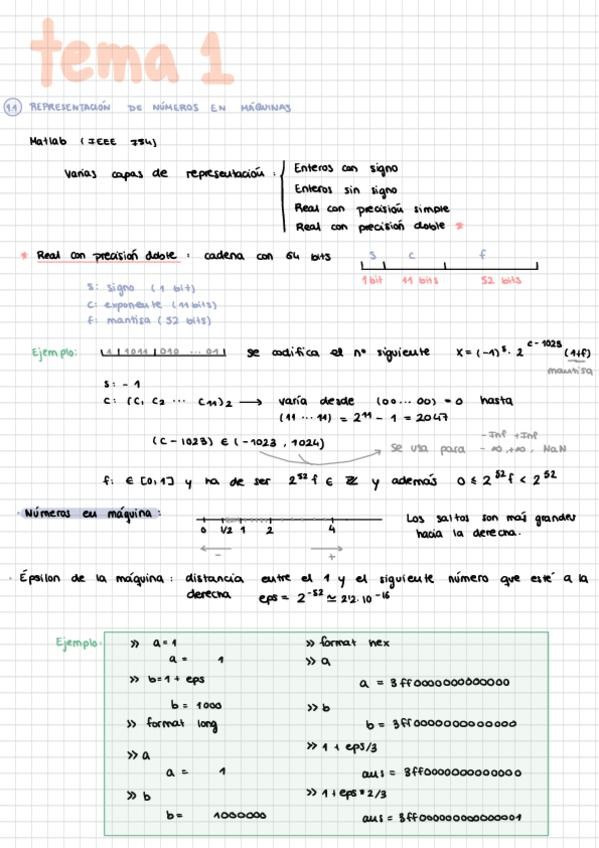 tema 1
1.1 REPRESENTACIÓN DE NÚMEROS EN MÁQUINAS
Matlab (IEEE 754)
Varias capas de representación:
Enteros con signo
Enteros sin signo
Real con precisión simple
Real con precisión doble *
* Real con precisión doble: cadena con 64 bits
s c f
1 bit 11 bits 52 bits
s: signo (1 bit)
c: exponente (11 bits)
f: mantisa (52 bits)
Ejemplo: 1 | 1011 | 010 ... 01 | se codifica el nº siguiente x = (-1)^s · 2^(c-1023) (1+f)
mantisa
s: -1
c: (c₁ c₂ ... c₁₁)₂ → varía desde (00...00) = 0 hasta
(11...11) = 2¹¹ - 1 = 2047
(c-1023) ∈ (-1023, 1024)
se usa para
-Inf +Inf
-∞, +∞, NaN
f: ∈ [0,1] y ha de ser 2⁵²f ∈ ℤ y además 0 ≤ 2⁵²f < 2⁵²
· Números en máquina:
0 1/2 1 2 4
← - + →
Los saltos son más grandes
hacia la derecha.
· Épsilon de la máquina: distancia entre el 1 y el siguiente número que esté a la
derecha eps = 2⁻⁵² ≃ 2'2·10⁻¹⁶
Ejemplo:
>> a=1
a = 1
>> b=1+eps
b = 1000
>> format long
>> a
a = 1
>> b
b = 1000000
>> format hex
>> a
a = 3ff0000000000000
>> b
b = 3ff0000000000000
>> 1 + eps/3
aus = 3ff0000000000000
>> 1+eps*2/3
aus = 3ff0000000000001